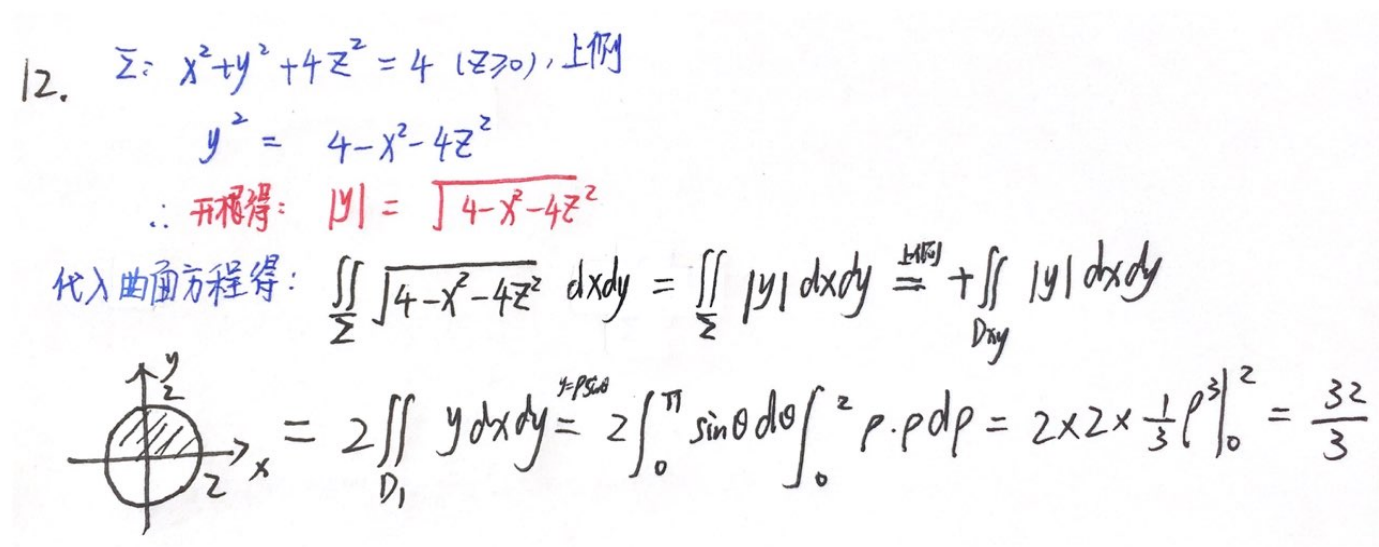 12. Σ: x²+y²+4z²=4 (z≥0), 上侧
y² = 4-x²-4z²
∴ 开根得: |y| = √(4-x²-4z²)
代入曲面方程得: ∬_Σ √(4-x²-4z²) dxdy = ∬_Σ |y| dxdy =(上侧) +∬_Dxy |y| dxdy
y 2 x 2 = 2∬_D₁ y dxdy =(y=ρsinθ) 2∫₀^π sinθ dθ ∫₀² ρ·ρ dρ = 2×2×1/3 ρ³|₀² = 32/3